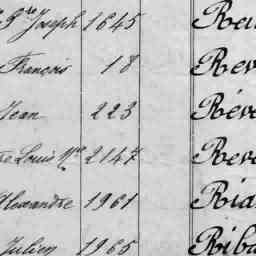 Joseph 1645 Re
François 18 Rev
Jean 223 Réve
re Louis 2147 Reve
Alexandre 1961 Ria
Julien 1965 Riba